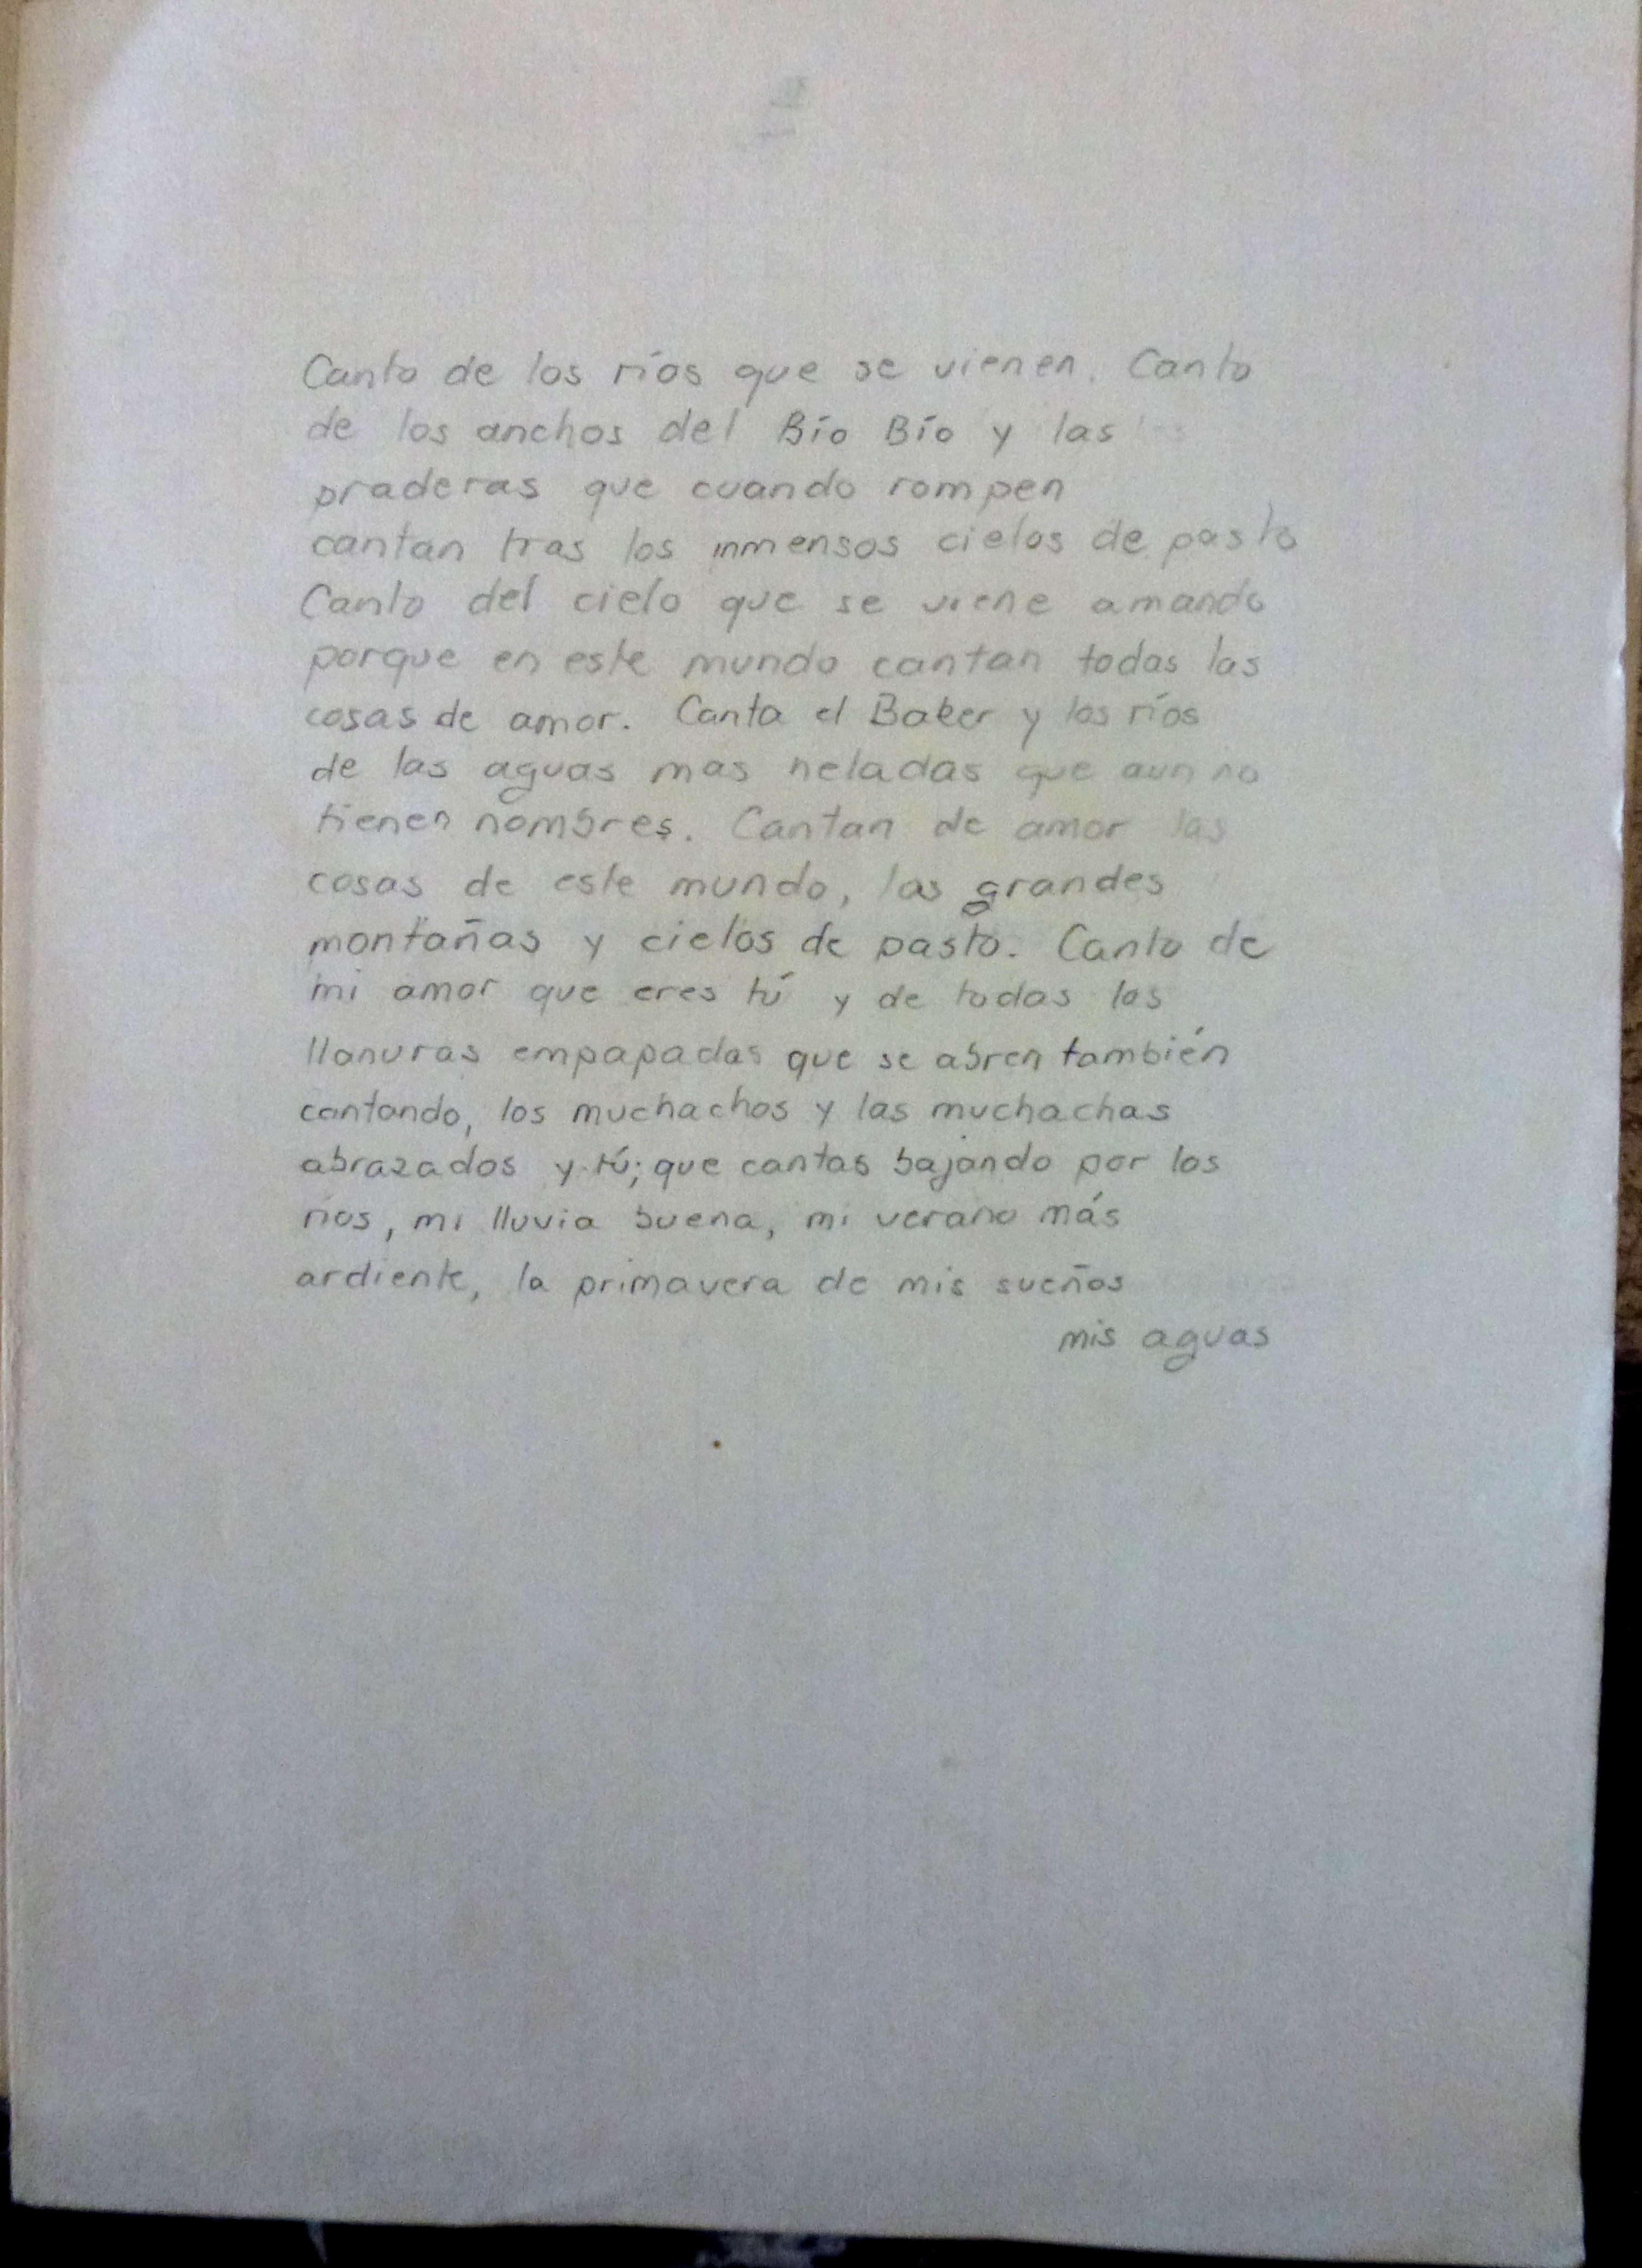 Canto de los ríos que se vienen. Canto
de los anchos del Bío Bío y las
praderas que cuando rompen
cantan tras los inmensos cielos de pasto
Canto del cielo que se viene amando
porque en este mundo cantan todas las
cosas de amor. Canta el Baker y los ríos
de las aguas mas heladas que aun no
tienen nombres. Cantan de amor las
cosas de este mundo, las grandes
montañas y cielos de pasto. Canto de
mi amor que eres tú y de todas las
llanuras empapadas que se abren también
cantando, los muchachos y las muchachas
abrazados y tú; que cantas bajando por los
ríos, mi lluvia buena, mi verano más
ardiente, la primavera de mis sueños
mis aguas